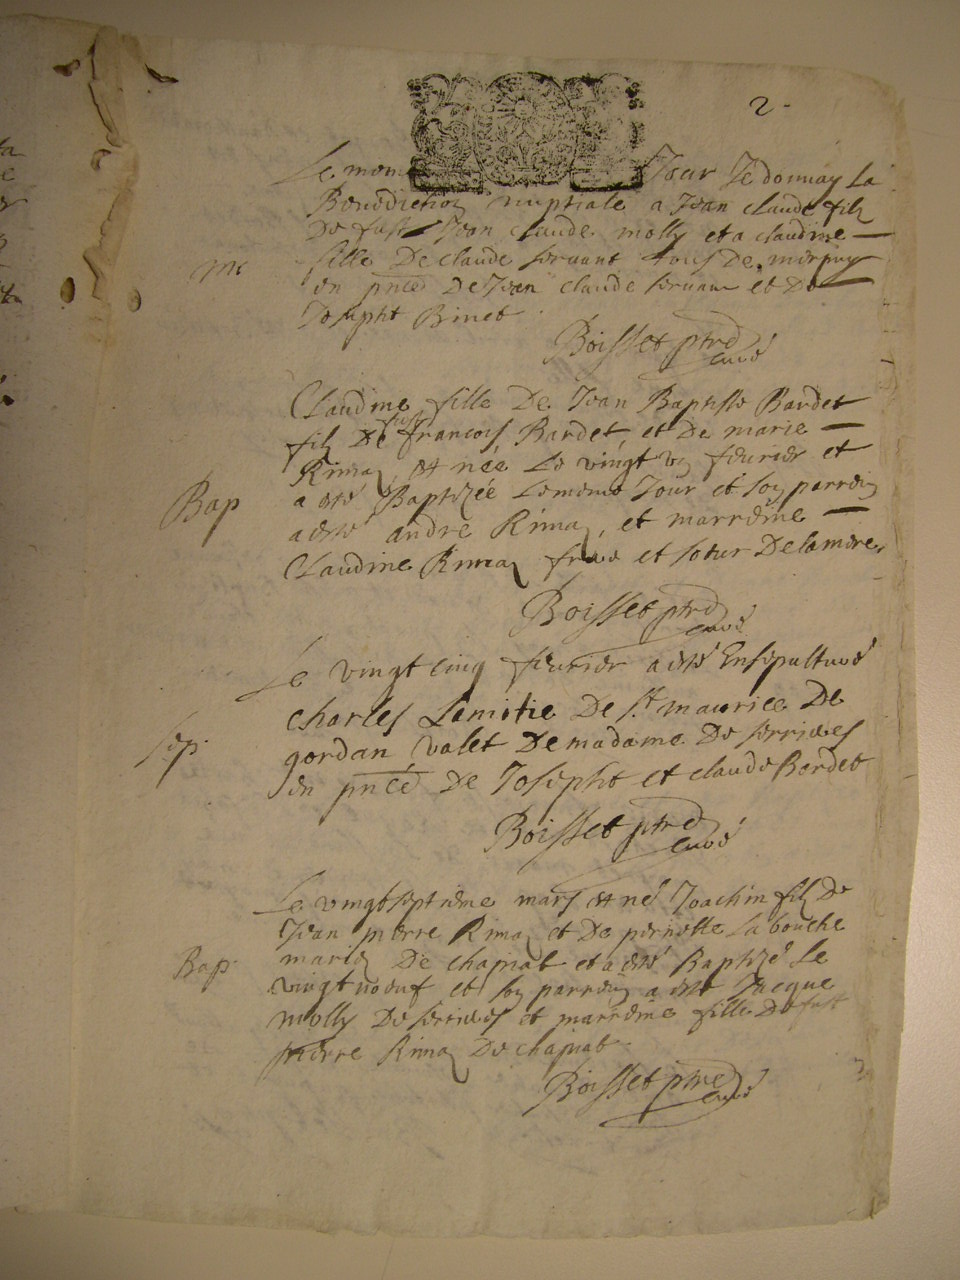 2.
Le mem Jour Je donnay La
Benediction nuptiale a Jean claude filz
De fust Jean claude molly et a claudine
fille De claude servant tous De merpuy
en pnce De Jean claude servant et De
Josepht Binet
Boisset ptre
curé
Claudine fille De Jean Baptiste Bardet
filz De fust francois Bardet et De marie
Rima est née Le vingt un feuvrier et
a esté Baptizée Lememe Jour et son parrein
a esté andre Rima, et marreine
Claudine Rima frere et soeur De la mere
Bap
Boisset ptre
curé
Le vingt cinq feuvrier a esté Ensepulturé
Charles Lemitie De St maurice De
gordan valet De madame De serrieres
en pnce De Josepht et claude Bardet
Sep.
Boisset ptre
curé
Le vingt septieme mars est né Joachin filz De
Jean pierre Rima et De pernette La bouche
mariez De chapiat et a esté Baptizé Le
Bap.
vingt noeuf et son parrein a esté Jacque
molly De serrieres et marreine fille De fust
pierre Rima De chapiat
Boisset ptre
curé